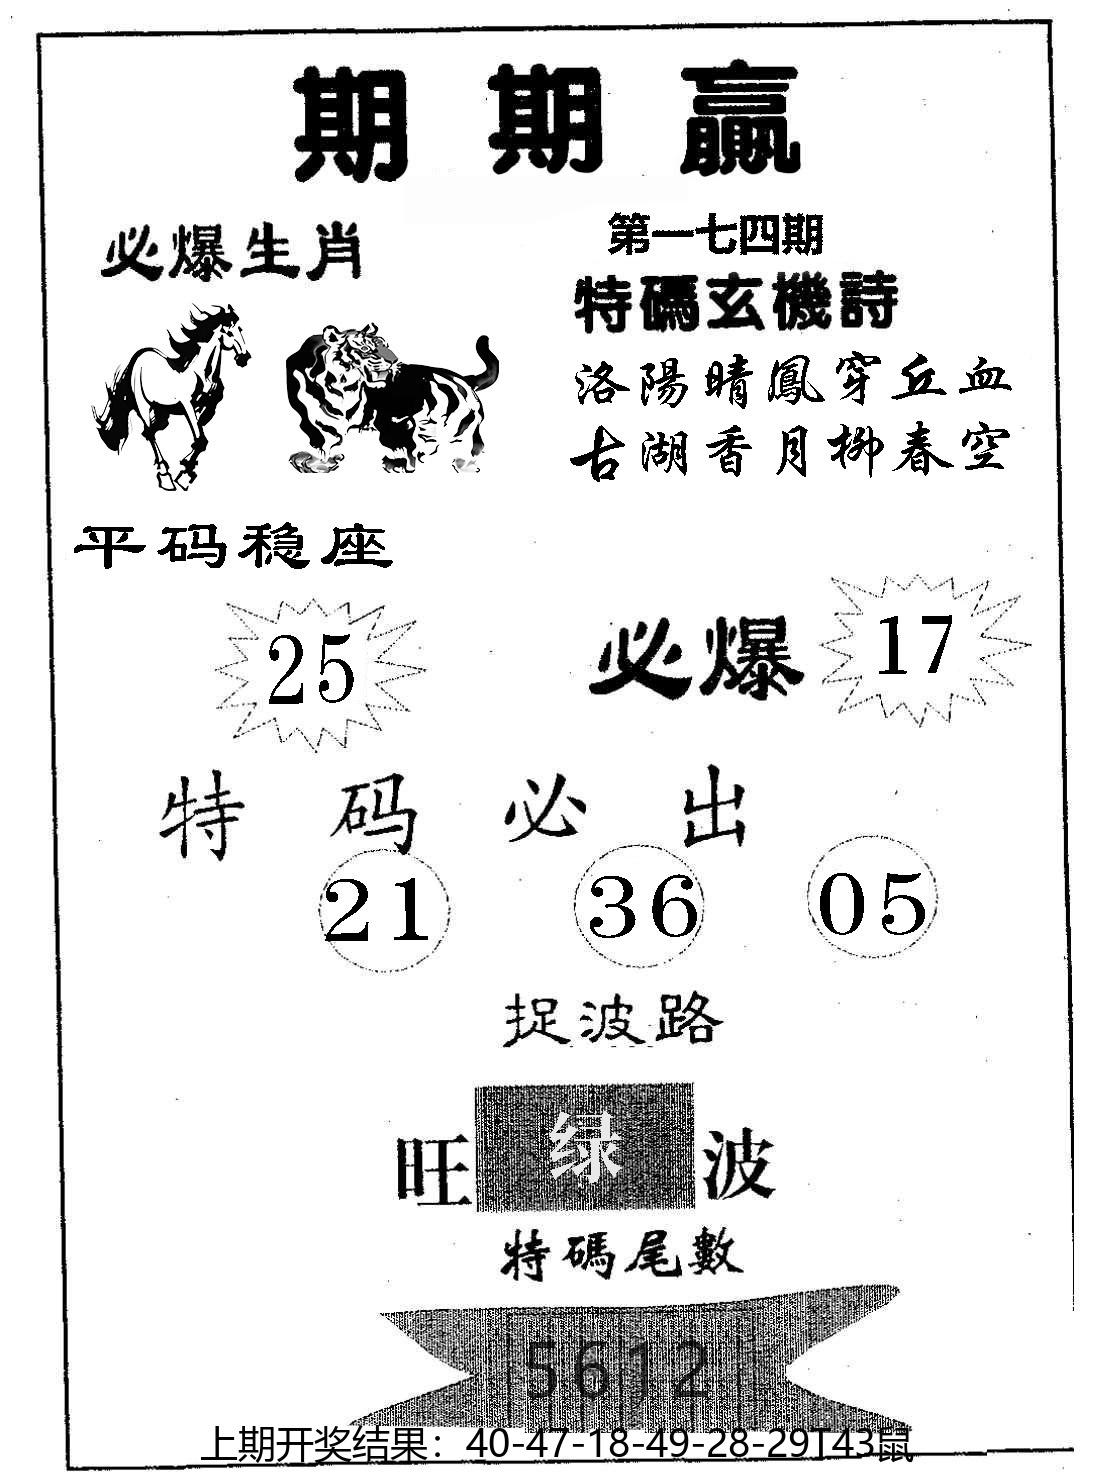 期期贏
必爆生肖
第一七四期
特碼玄機詩
洛陽晴鳳穿丘血
古湖香月柳春空
平码稳座
25
必爆 17
特码必出
21 36 05
捉波路
旺 绿 波
特碼尾數
5612
上期开奖结果：40-47-18-49-28-29T43鼠